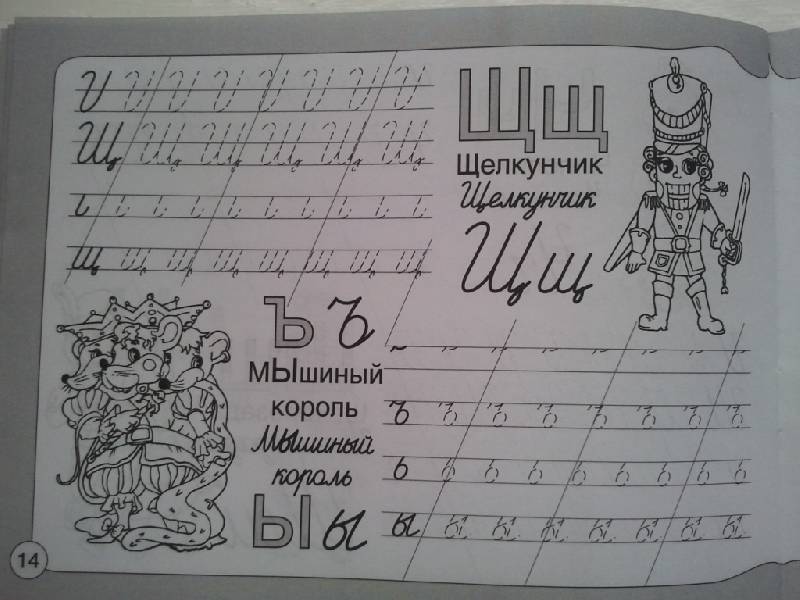 И И И И И И И И
Щ Щ Щ Щ Щ Щ
и и и и и и и и и
щ щ щ щ щ щ щ щ
Щщ
Щелкунчик
Щелкунчик
Щщ
Ъ ъ
мышиный
король
Мышиный
король
Ы ы
ъ ъ ъ ъ ъ ъ ъ ъ
ь ь ь ь ь ь ь ь ь
ы ы ы ы ы ы ы ы
14